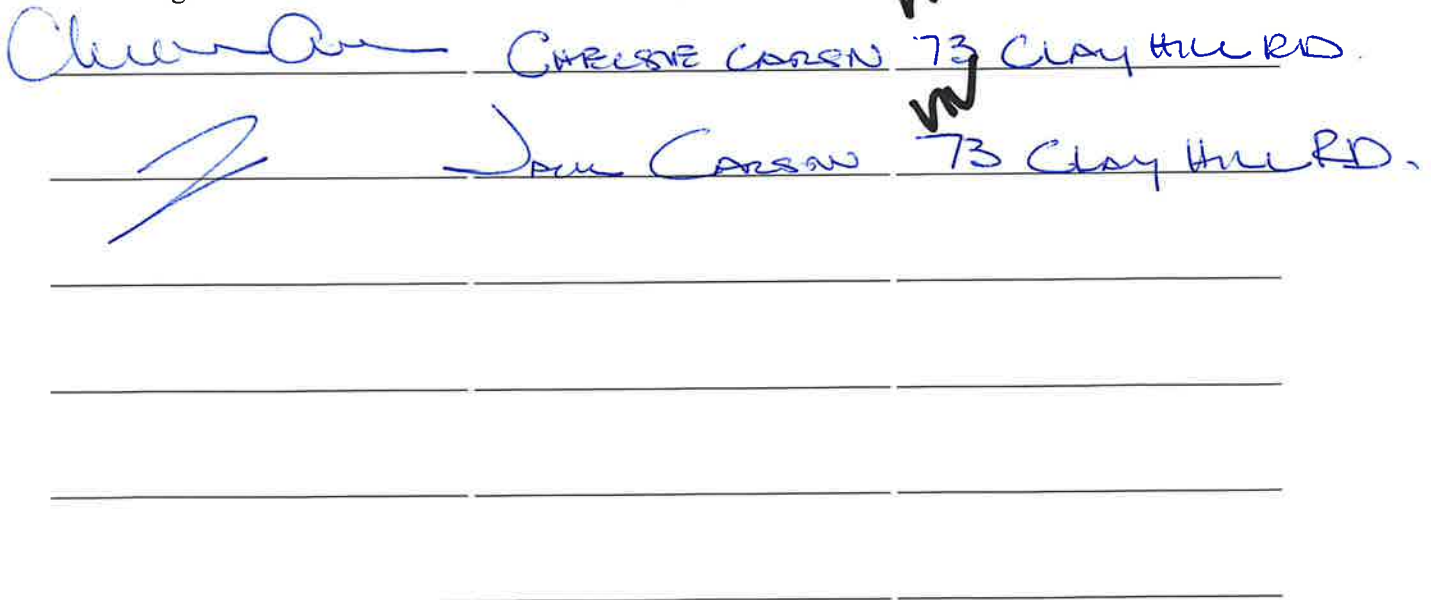 CHELSIE CARSON 73 CLAY HILL RD.
JACK CARSON 73 CLAY HILL RD.